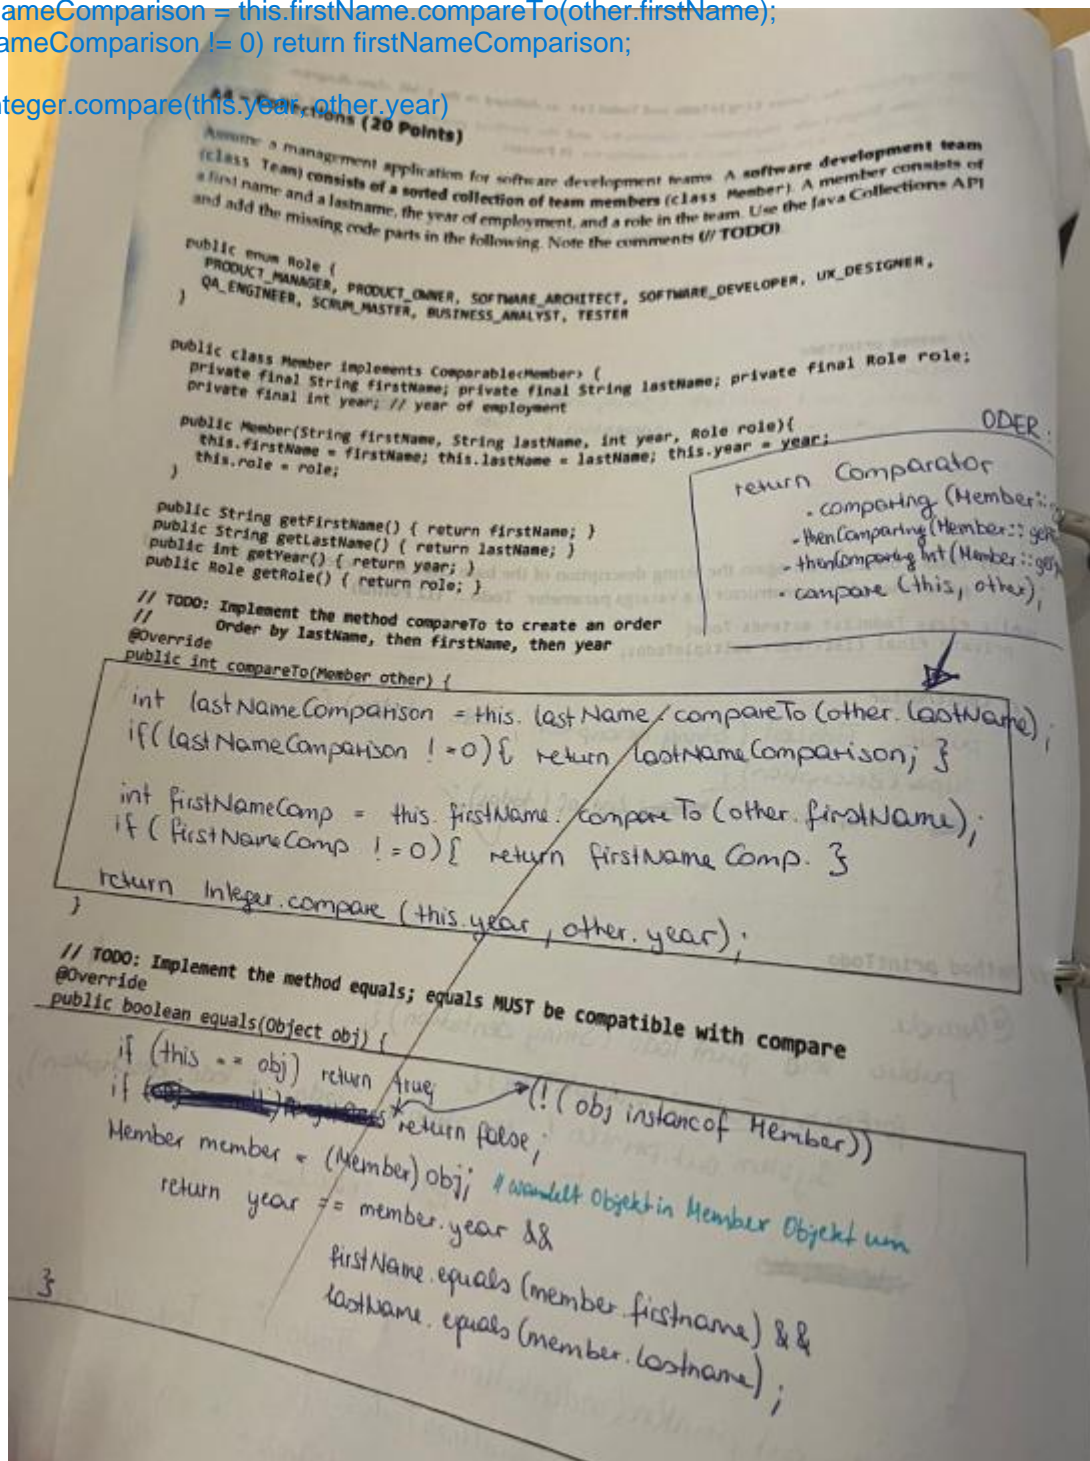 ameComparison = this.firstName.compareTo(other.firstName);
ameComparison != 0) return firstNameComparison;
nteger.compare(this.year, other.year)
A4 – Collections (20 Points)
Assume a management application for software development teams. A software development team
(class Team) consists of a sorted collection of team members (class Member). A member consists of
a first name and a lastname, the year of employment, and a role in the team. Use the Java Collections API
and add the missing code parts in the following. Note the comments (// TODO).
public enum Role {
PRODUCT_MANAGER, PRODUCT_OWNER, SOFTWARE_ARCHITECT, SOFTWARE_DEVELOPER, UX_DESIGNER,
QA_ENGINEER, SCRUM_MASTER, BUSINESS_ANALYST, TESTER
}
public class Member implements Comparable<Member> {
private final String firstName; private final String lastName; private final Role role;
private final int year; // year of employment
public Member(String firstName, String lastName, int year, Role role){
this.firstName = firstName; this.lastName = lastName; this.year = year;
this.role = role;
}
ODER:
return Comparator
.comparing (Member::
.thenComparing (Member::get
.thenComparing Int (Member::get
.compare (this, other);
public String getFirstName() { return firstName; }
public String getLastName() { return lastName; }
public int getYear() { return year; }
public Role getRole() { return role; }
// TODO: Implement the method compareTo to create an order
// Order by lastName, then firstName, then year
@Override
public int compareTo(Member other) {
int lastNameComparison = this. lastName. compareTo (other. lastName);
if( lastNameComparison != 0){ return lastNameComparison; }
int firstNameComp = this. firstName. compareTo (other. firstName);
if ( firstNameComp != 0){ return firstNameComp. }
return Integer.compare (this.year, other.year);
}
// TODO: Implement the method equals; equals MUST be compatible with compare
@Override
public boolean equals(Object obj) {
if (this == obj) return true;
if * return false; (!( obj instancof Member))
Member member = (Member) obj; // wandelt Objekt in Member Objekt um
return year == member.year &&
firstName.equals (member.firstname) &&
lastName.equals (member.lastname);
}